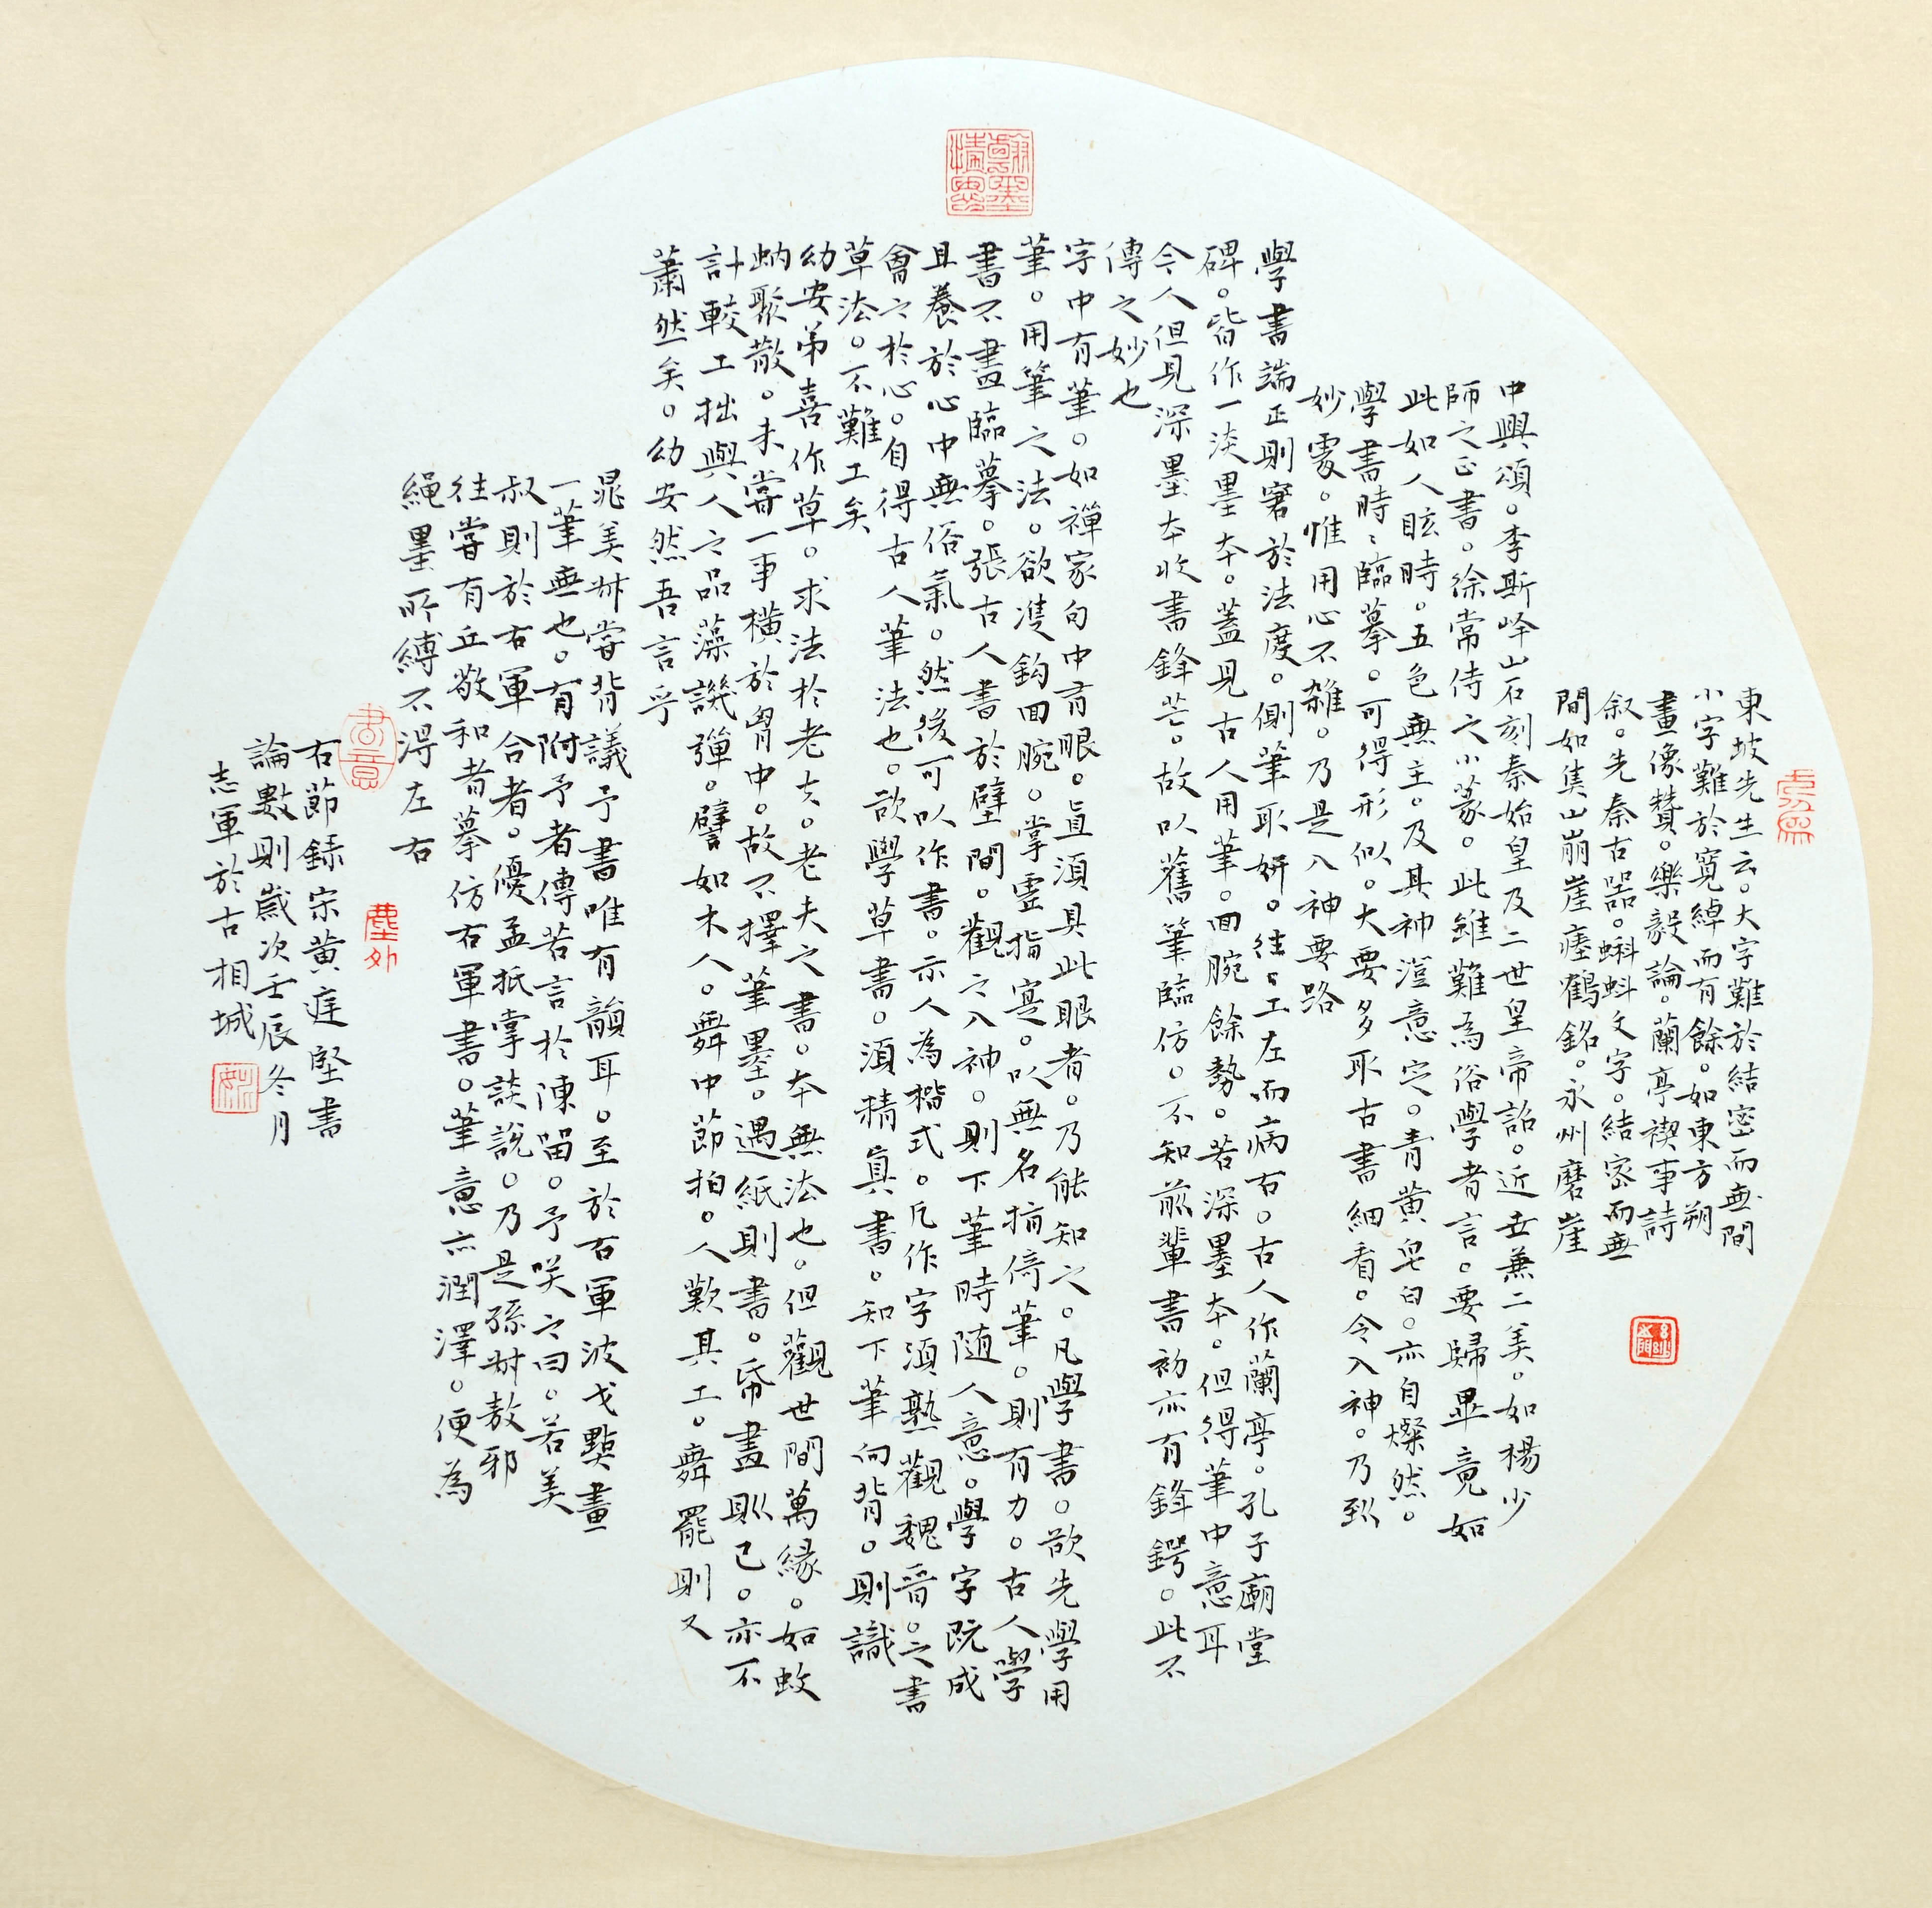 東坡先生云。大字難於結密而無間
小字難於寬綽而有餘。如東方朔
畫像贊。樂毅論。蘭亭禊事詩
叙。先秦古器。蝌蚪文字。結密而無
間如焦山崩崖瘞鶴銘。永州磨崖
中興頌。李斯嶧山石刻秦始皇及二世皇帝詔。近世兼二美。如楊少
師之正書。徐常侍之小篆。此雖難為俗學者言。要歸畢竟如
此如人眩時。五色無主。及其神澄意定。青黃皂白。亦自燦然。
學書時時臨摹。可得形似。大要多取古書細看。令入神。乃到
妙處。惟用心不雜。乃是入神要路
學書端正則窘於法度。側筆取妍。往往工左而病右。古人作蘭亭。孔子廟堂
碑。皆作一淡墨本。蓋見古人用筆。回腕餘勢。若深墨本。但得筆中意耳
今人但見深墨本收書鋒芒。故以舊筆臨仿。不知前輩書初亦有鋒鍔。此不
傳之妙也
字中有筆。如禪家句中有眼。直須具此眼者。乃能知之。凡學書。欲先學用
筆。用筆之法。欲雙鈎回腕。掌虛指實。以無名指倚筆。則有力。古人學
書不盡臨摹。張古人書於壁間。觀之入神。則下筆時隨人意。學字既成
且養於心中無俗氣。然後可以作書。示人為楷式。凡作字須熟觀魏晉。之書
會之於心。自得古人筆法也。欲學草書。須精真書。知下筆向背。則識
草法。不難工矣
幼安弟喜作草。求法於老夫。老夫之書。本無法也。但觀世間萬緣。如蚊
蚋聚散。未嘗一事橫於胸中。故不擇筆墨。遇紙則書。紙盡則已。亦不
計較工拙與人之品藻譏彈。譬如木人。舞中節拍。人歎其工。舞罷則又
蕭然矣。幼安然吾言乎
晁美叔嘗背議予書唯有韻耳。至於右軍波戈點畫
一筆無也。有附予者傳若言於陳留。予咲之曰。若美
叔則於右軍合者。優孟抵掌談說。乃是孫叔敖邪
往嘗有丘敬和者摹仿右軍書。筆意亦潤澤。便為
繩墨所縛不得左右
右節録宋黃庭堅書
論數則歲次壬辰冬月
志軍於古相城
翰墨情思
書意
塵外